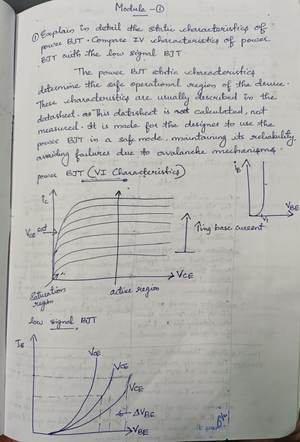 Module - ①
① Explain in detail the static characteristics of
power BJT. Compare IV characteristics of power
BJT with the low signal BJT.
The power BJT static characteristics
determine the safe operational region of the device.
These characteristics are usually described in the
datasheet. This datasheet is not calculated, not
measured. It is made for the designer to use the
power BJT in a safe mode, maintaining its reliability,
avoiding failures due to avalanche mechanisms.
power BJT (VI Characteristics)
iB
VBE
Vγ
iC
VCE sat
↑ing base current
VCE
Saturation
region
active region
low signal BJT
IB
VCE
VCE
VCE
ΔVBE
VBE